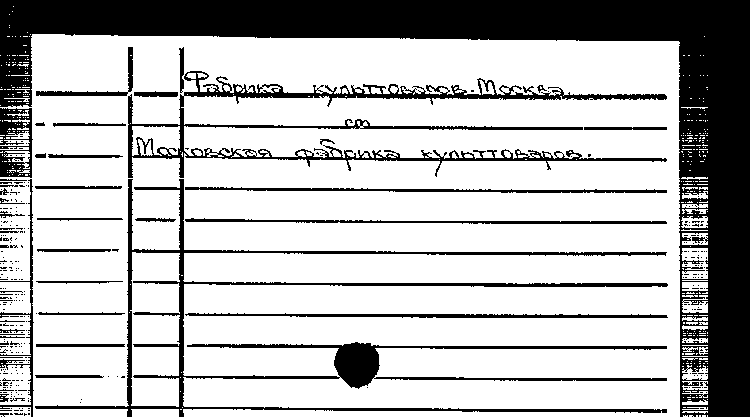 Фабрика культтоваров. Москва.
см
Московская фабрика культтоваров.